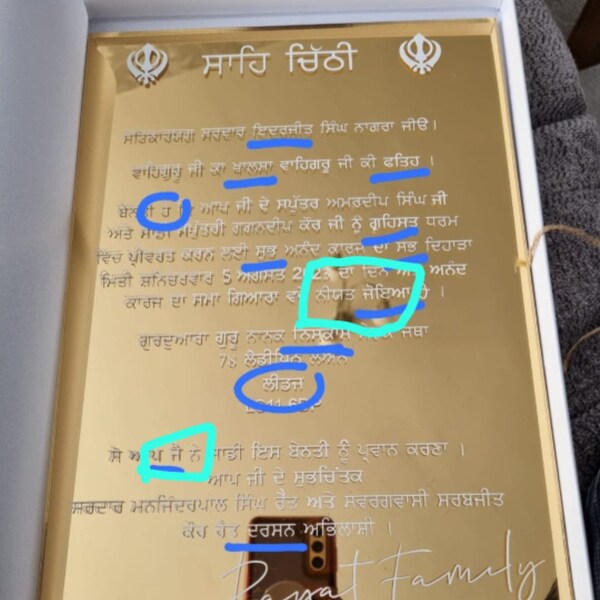 ਸਾਹਿ ਚਿੱਠੀ
ਸਤਿਕਾਰਯੋਗ ਸਰਦਾਰ ਇਦਰਜੀਤ ਸਿੰਘ ਨਾਗਰਾ ਜੀਓ ।
ਵਾਹਿਗੁਰੂ ਜੀ ਕਾ ਖ਼ਾਲਸਾ ਵਾਹਿਗਰੂ ਜੀ ਕੀ ਫਤਿਹ ।
ਬੇਨਤੀ ਹ ਆਪ ਜੀ ਦੇ ਸਪੁੱਤਰ ਅਮਰਦੀਪ ਸਿੰਘ ਜੀ
ਅਤੇ ਸਾਡੀ ਸਪੁੱਤਰੀ ਗਗਨਦੀਪ ਕੌਰ ਜੀ ਨੂੰ ਗ੍ਰਹਿਸਤ ਧਰਮ
ਵਿੱਚ ਪ੍ਰੀਵਰਤ ਕਰਨ ਲਈ ਸੁਭ ਅਨੰਦ ਕਾਰਜ ਦਾ ਸਭ ਦਿਹਾੜਾ
ਮਿਤੀ ਸ਼ਨਿਚਰਵਾਰ 5 ਅਗਸਤ 2023 ਦਾ ਦਿਨ ਅਨੰਦ
ਕਾਰਜ ਦਾ ਸਮਾ ਗਿਆਰਾ ਵਜੇ ਨੀਯਤ ਜੋਇਆ ਹੈ ।
ਗੁਰਦੁਆਰਾ ਗੁਰੂ ਨਾਨਕ ਨਿਸ਼ਕਾਮ ਜਥਾ
78 ਲੇਡੀਪਿਟ ਲੇਅਨ
ਲੀਡਜ
ਸੋ ਆਪ ਜੈ ਨੇ ਸਾਡੀ ਇਸ ਬੇਨਤੀ ਨੂੰ ਪ੍ਰਵਾਨ ਕਰਣਾ ।
ਆਪ ਜੀ ਦੇ ਸੁਭਚਿੰਤਕ
ਸਰਦਾਰ ਮਨਜਿੰਦਰਪਾਲ ਸਿੰਘ ਰੈਤ ਅਤੇ ਸਵਰਗਵਾਸੀ ਸਰਬਜੀਤ
ਕੌਰ ਰੈਤ ਦਰਸਨ ਅਭਿਲਾਸ਼ੀ ।
Rayat Family